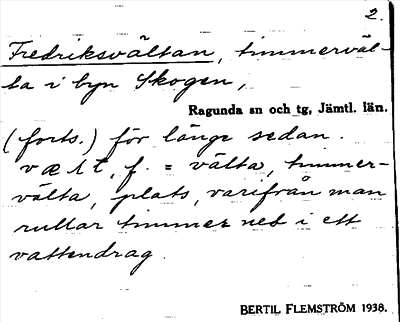 2.
Fredriksvältan, timmerväl-
ta i byn Skogen,
Ragunda sn och tg, Jämtl. län.
(forts.) för länge sedan.
f. = välta, timmer-
välta, plats, varifrån man
rullar timmer ned i ett
vattendrag.
BERTIL FLEMSTRÖM 1938.